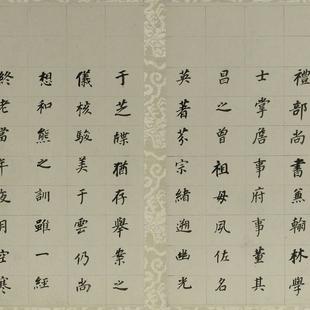 禮部尚書兼翰林學
士掌詹事府事董其
昌之曾祖母夙佐名
英著芬宗緒遡幽光
于芝牒猶存舉案之
儀核駿美于雲仍尚
想和熊之訓雖一經
終老當年夜月空寒